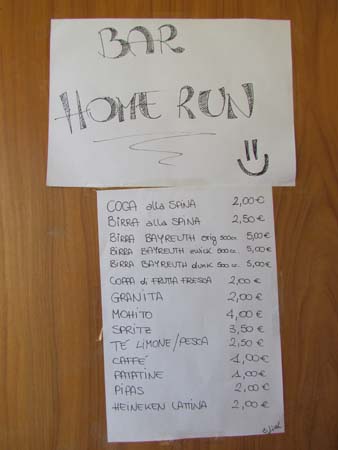 BAR
HOME RUN
COCA alla SPINA 2,00€
BIRRA alla SPINA 2,50€
BIRRA BAYREUTH orig 500cc 5,00€
BIRRA BAYREUTH 500cc 5,00€
BIRRA BAYREUTH dunk 500cc 5,00€
COPPA di FRUTTA FRESCA 2,00€
GRANITA 2,00€
MOHITO 4,00€
SPRITZ 3,50€
TÉ LIMONE/PESCA 2,50€
CAFFÉ 1,00€
PATATINE 1,00€
PIPAS 2,00€
HEINEKEN LATTINA 2,00€